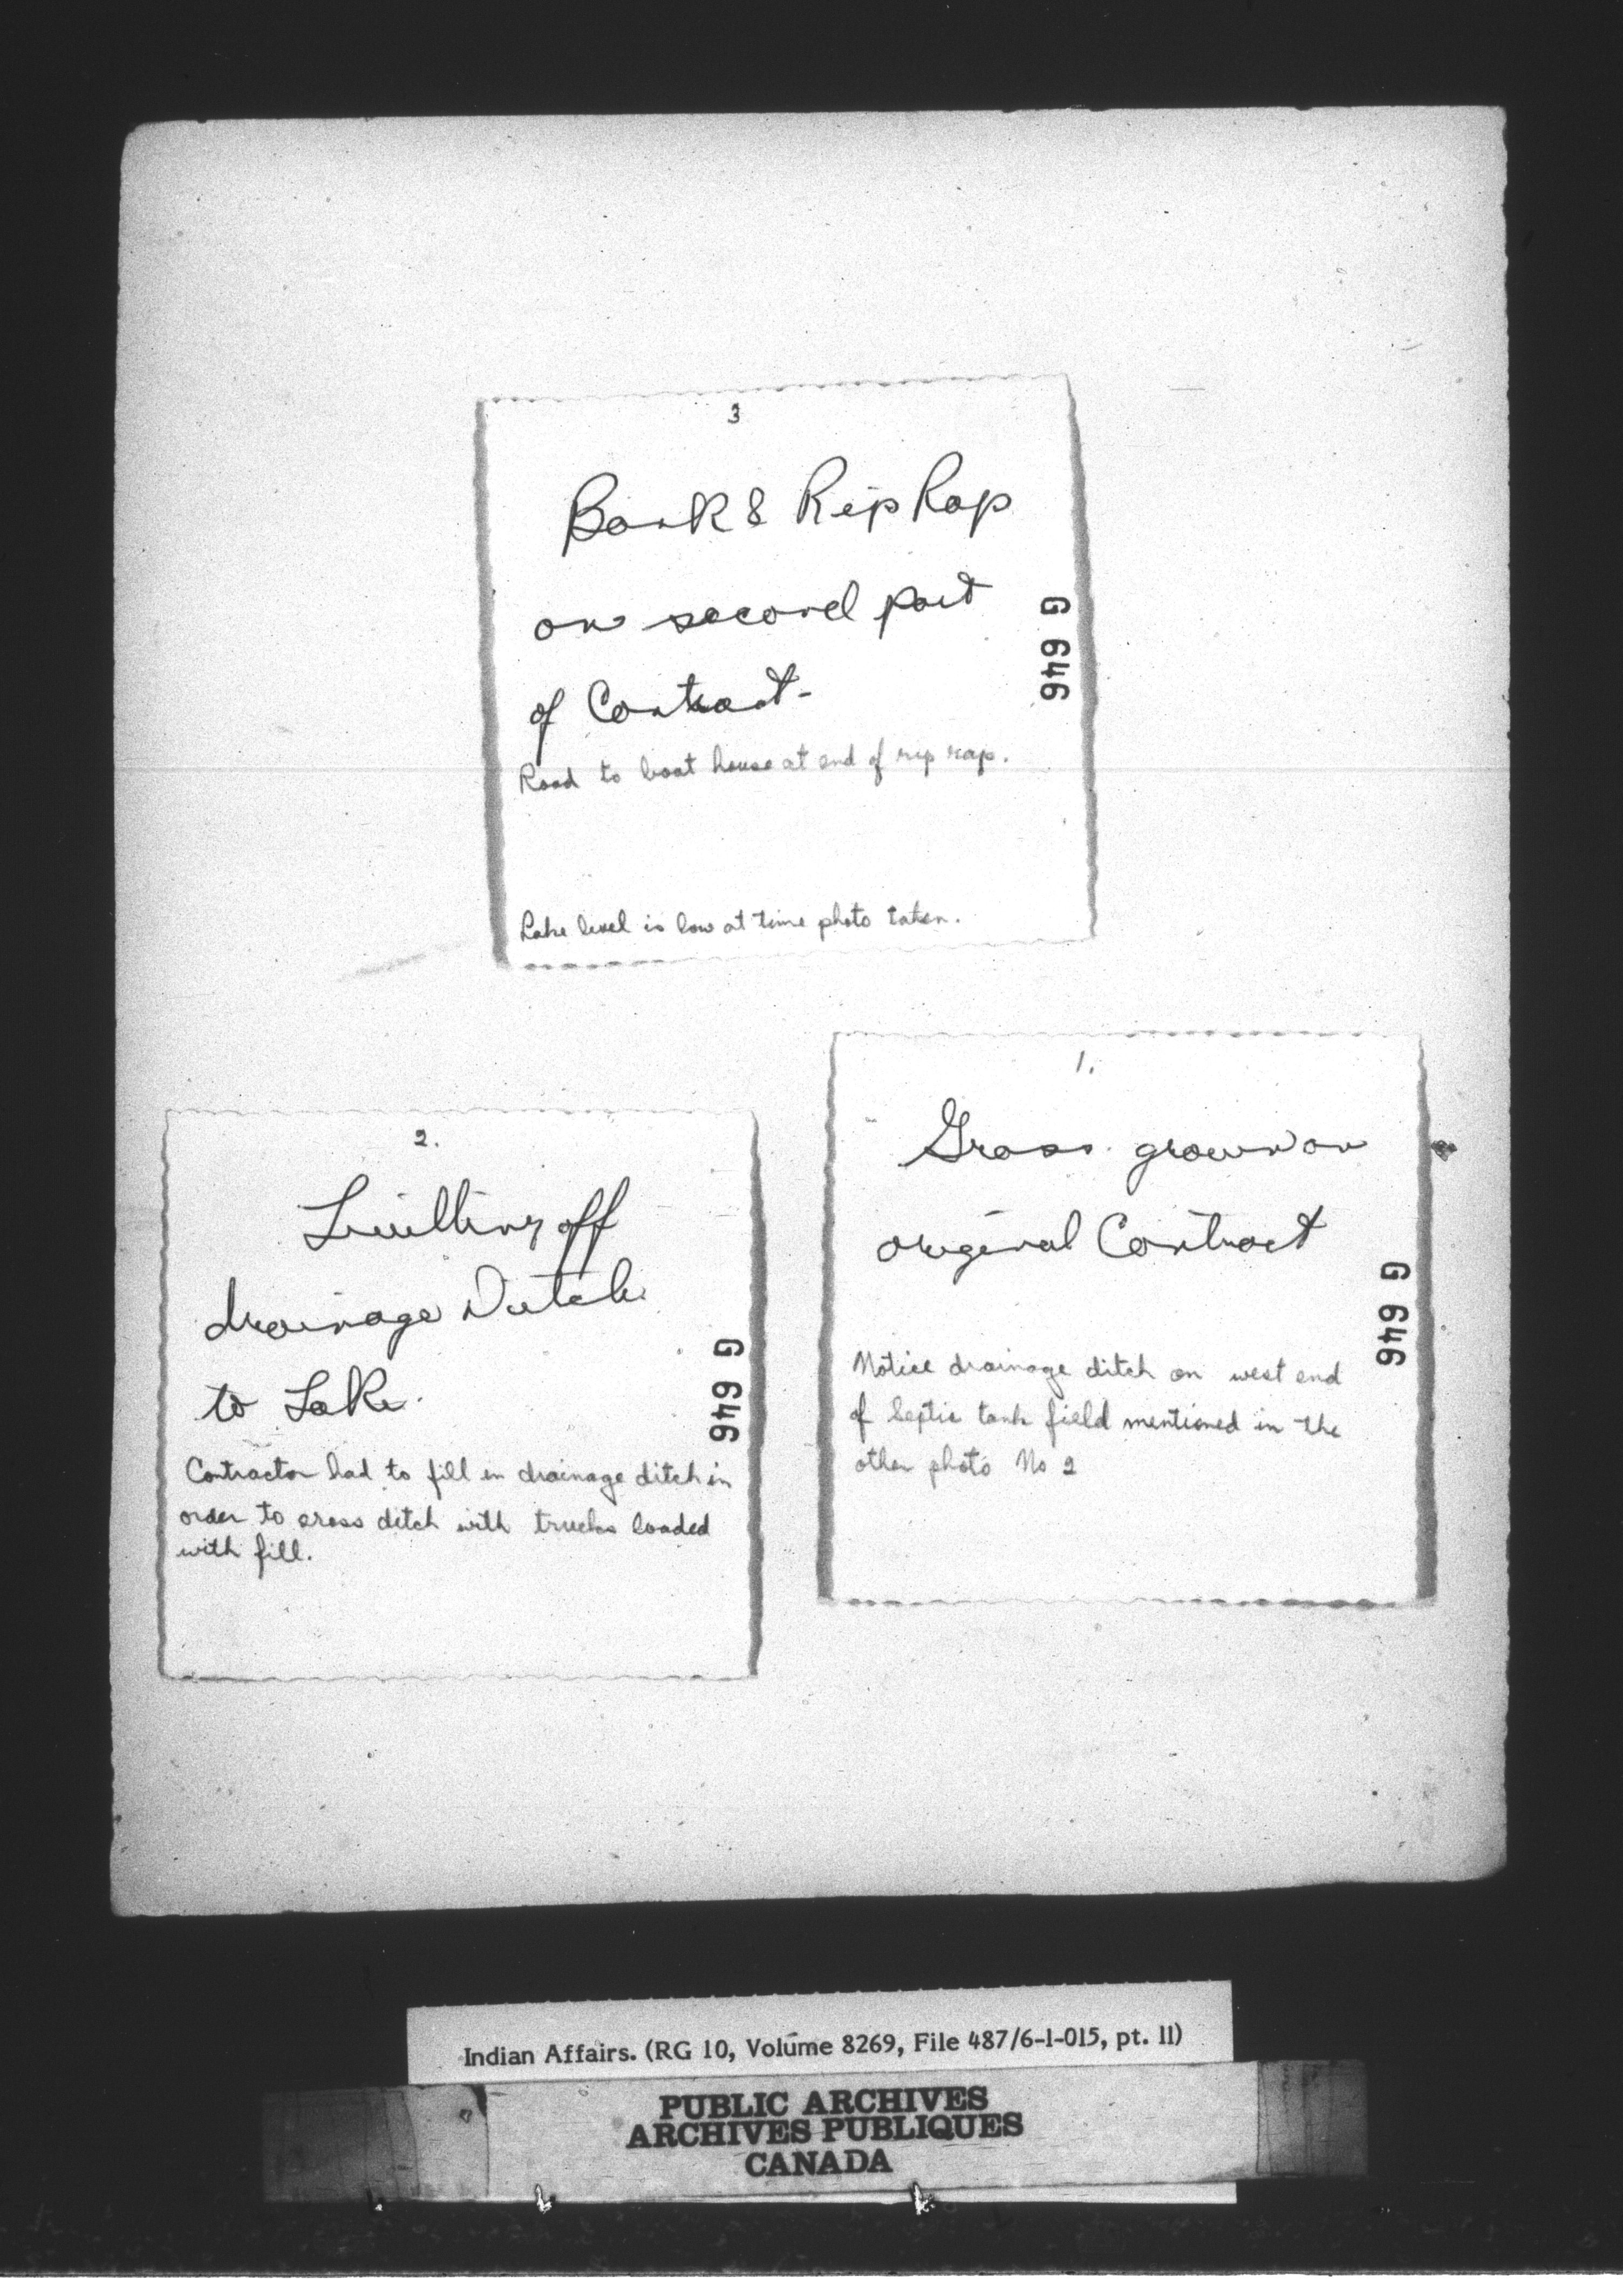 3
Bank & Rip Rap
on second part
of Contract-
Road to boat house at end of rip rap.
Lake level is low at time photo taken.
G 646
2.
off
drainage Ditch
to Lake.
Contractor had to fill in drainage ditch in
order to cross ditch with trucks loaded
with fill.
G 646
1.
Grass grown on
original Contract
Notice drainage ditch on west end
of Septic tank field mentioned in the
other photo No 2
G 646
Indian Affairs. (RG 10, Volume 8269, File 487/6-1-015, pt. 11)
PUBLIC ARCHIVES
ARCHIVES PUBLIQUES
CANADA